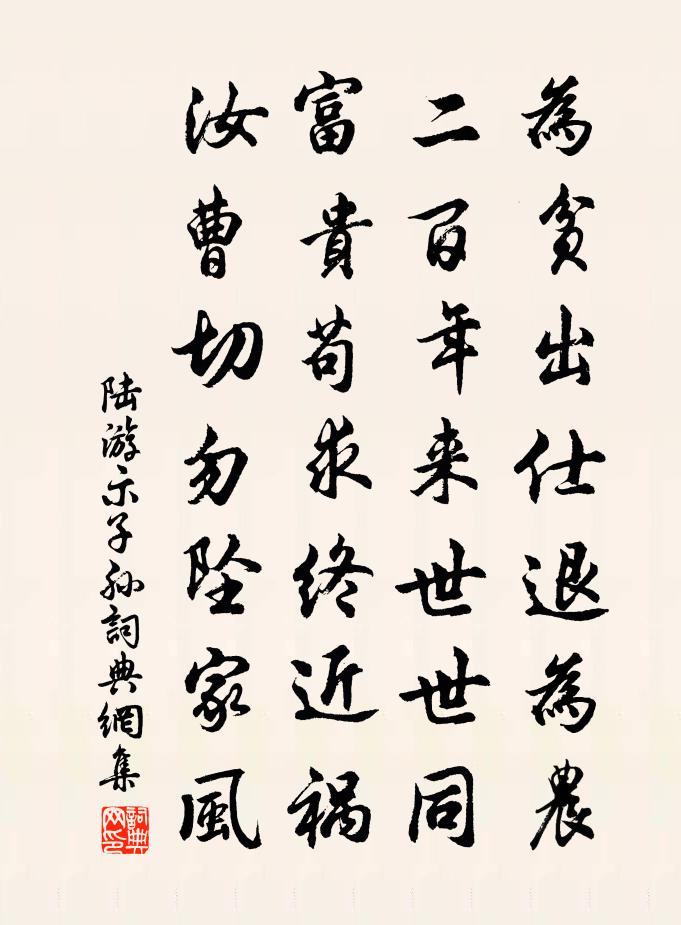 為貧出仕退為農
二百年来世世同
富貴苟求終近祸
汝曹切勿坠家風
陆游示子孙詞典網集
詞典
网印